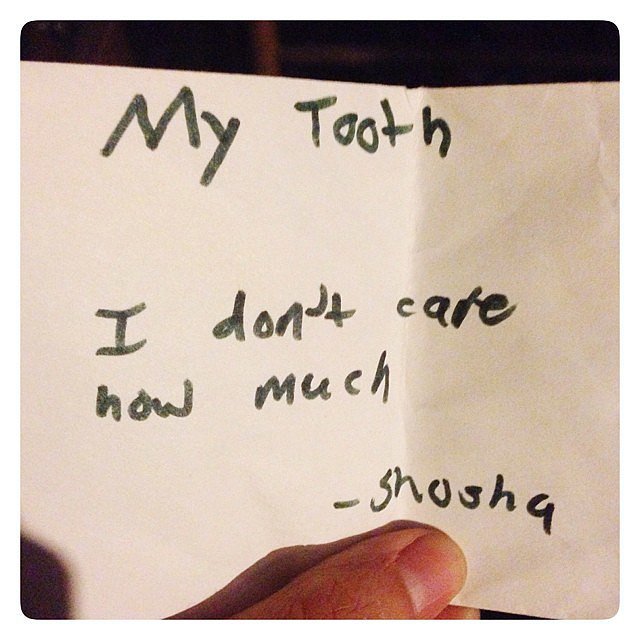 My Tooth
I don't care
how much
- Shosha